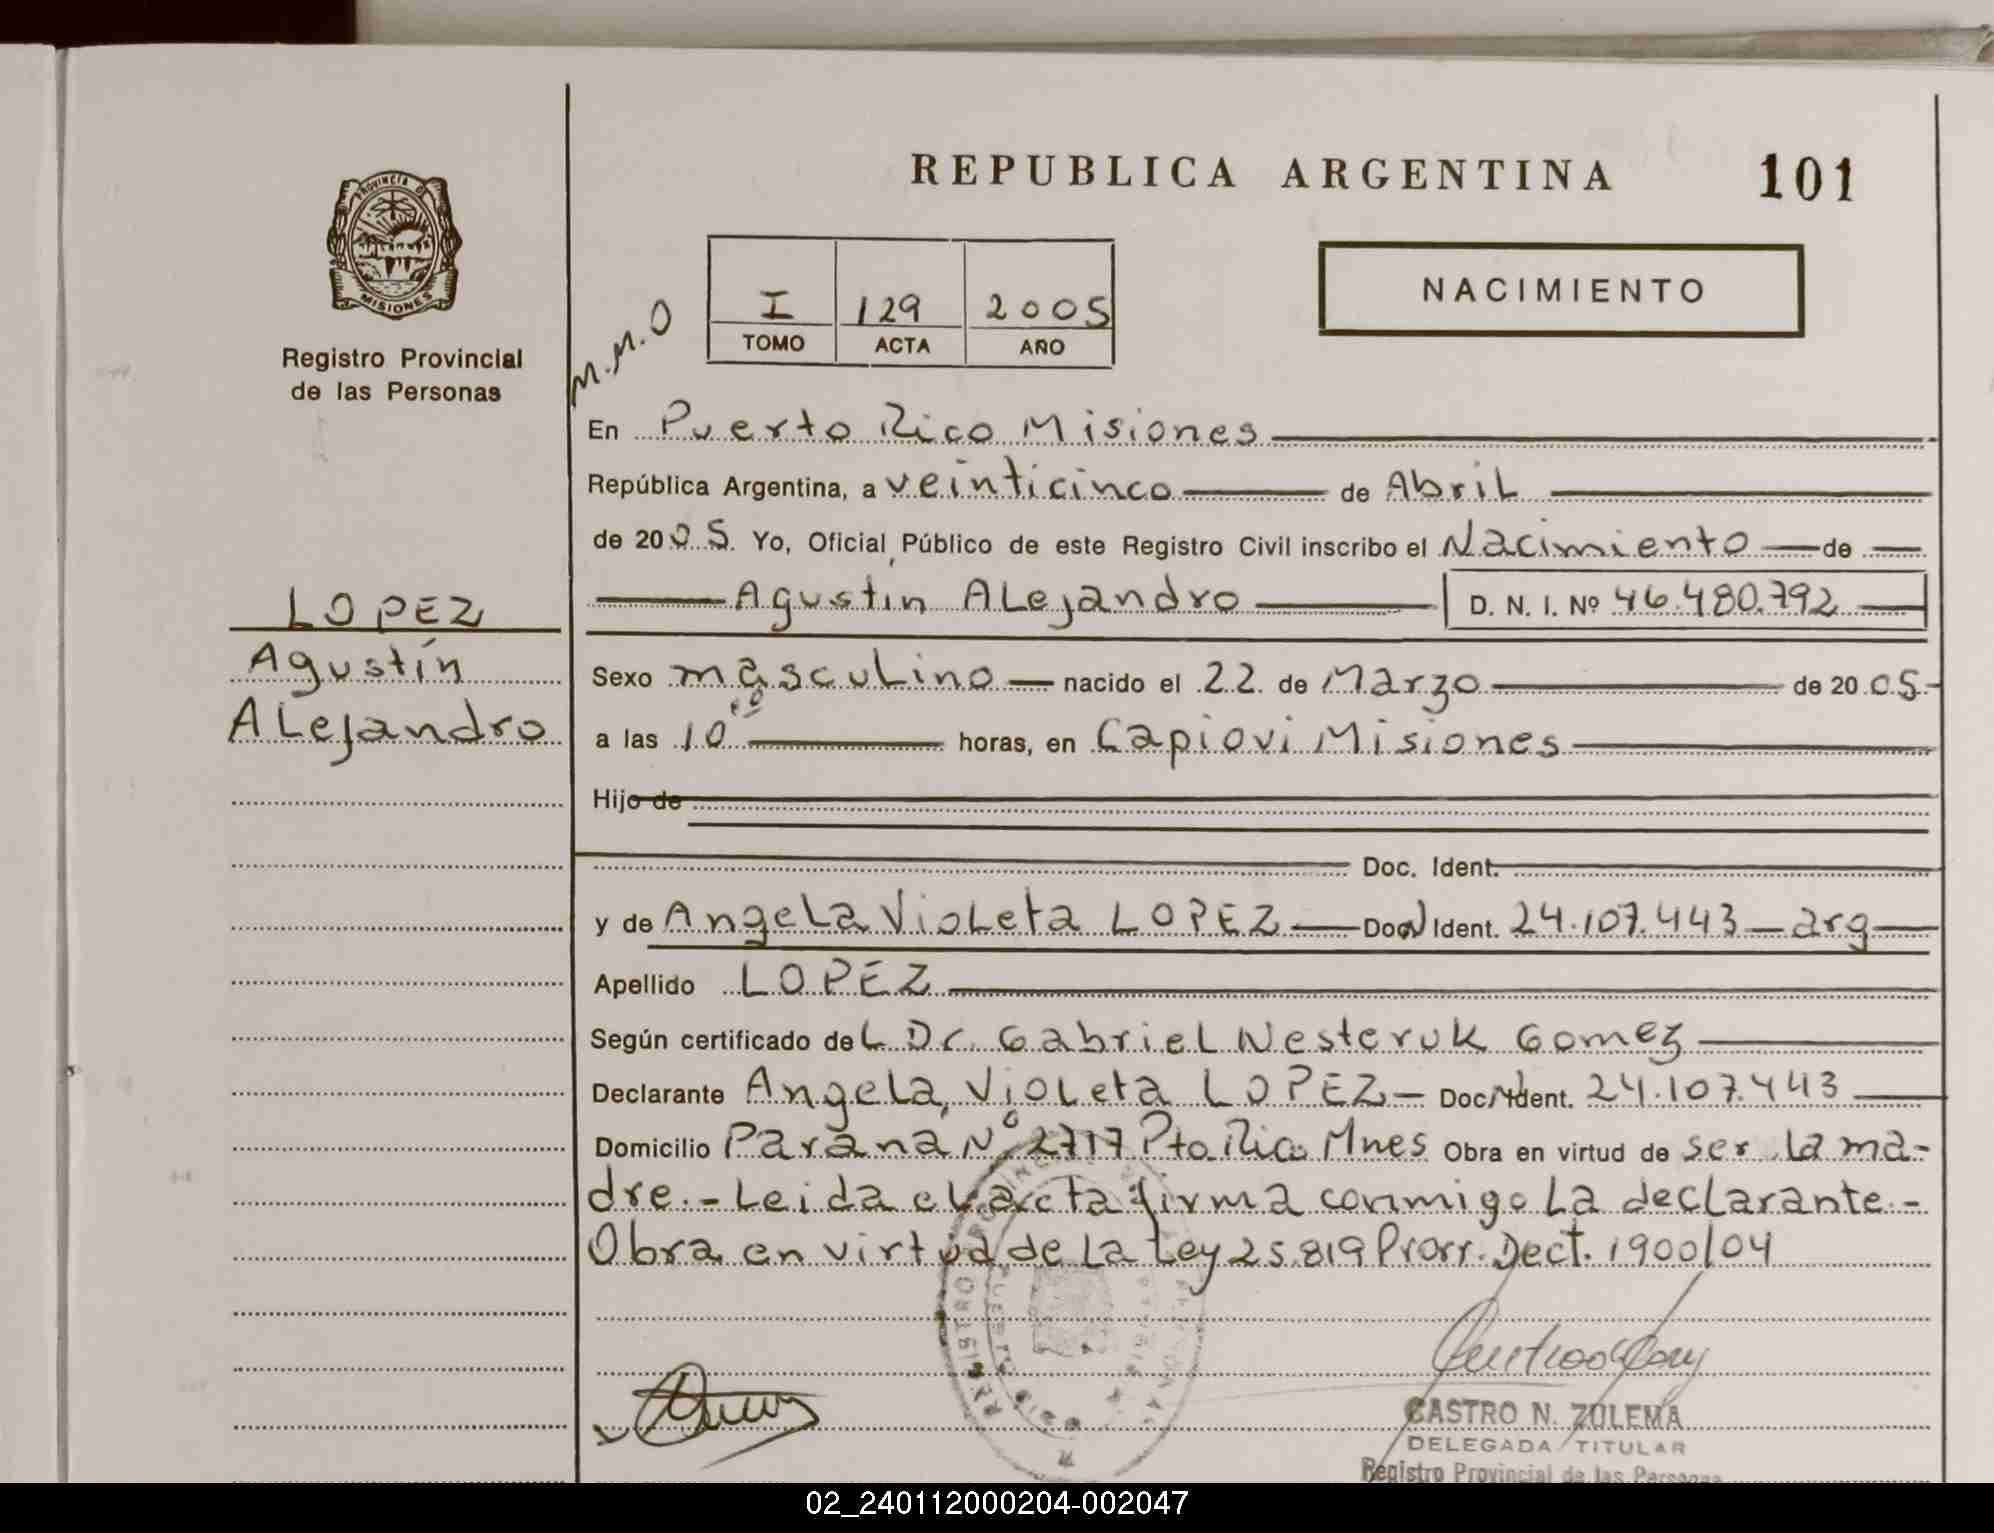 REPUBLICA ARGENTINA
101
PROVINCIA DE
MISIONES
Registro Provincial
de las Personas
M.M.O
I 129 2005
TOMO ACTA AÑO
NACIMIENTO
En Puerto Rico Misiones
República Argentina, a veinticinco de Abril
de 2005. Yo, Oficial Público de este Registro Civil inscribo el Nacimiento de
Agustín Alejandro D. N. I. Nº 46.480.792
LOPEZ
Agustín
Alejandro
Sexo masculino nacido el 22 de Marzo de 2005
a las 10 horas, en Capiovi Misiones
Hijo de
Doc. Ident.
y de Angela Violeta LOPEZ Doc. N Ident. 24.107.443 arg
Apellido LOPEZ
Según certificado del Dr. Gabriel Nesteruk Gomez
Declarante Angela Violeta LOPEZ Doc. N Ident. 24.107.443
Domicilio Paraná Nº 2717 Pto Rico Mnes Obra en virtud de ser la ma-
dre.- Leida el acta firma conmigo la declarante.-
Obra en virtud de la Ley 25.819 Prorr. Dect. 1900/04
CASTRO N. ZULEMA
DELEGADA TITULAR
Registro Provincial de las Personas
02_240112000204-002047